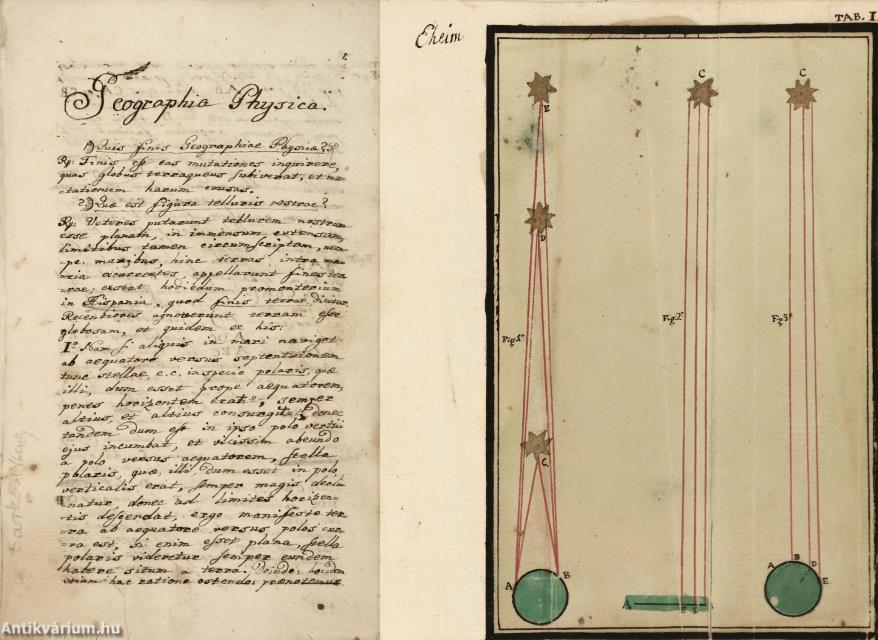 1.
Geographia Physica.
1) Quis finis Geographiae Physicae?
Rp: Finis est eas mutationes inquirere,
quas globus terraqueus subiverat, et mu-
tationum harum causas.
2) Quae est figura telluris nostrae?
Rp: Veteres putarunt tellurem nostram
esse planam, in immensum extensam,
limitibus tamen circumscriptam, nem-
pe maribus, hinc terras intra ma-
ria excurrentes, appellarunt fines ter-
rae; extat hodiedum promontorium
in Hispania, quod finis terrae dicitur.
Recentiores agnoverunt terram esse
globosam, et quidem ex his:
I° Nam si aliquis in mari naviget
ab aequatore versus septentrionem
tunc stellae, e.c. in specie polaris, quae
illi, dum esset prope aequatorem,
penes horizontem erat, semper
altius, et altius consurgit, donec
tandem dum est in ipso polo vertici
ejus incumbat, et vicissim abeundo
a polo versus aequatorem, stella
polaris, quae illi dum esset in polo
verticalis erat, semper magis decli-
natur donec ad limites horizon-
tis descendat, ergo manifeste ter-
ra ab aequatore versus polos cur-
va est, si enim esset plana, stella
polaris videretur semper eundem
habere situm a terra. Deinde: hocidem
etiam hac ratione ostendo: praenotemus
Eheim
TAB. I.
E
D
C
Fig 1ª
A
B
C
Fig 2ª
A
C
Fig 3ª
A
B
D
E
Antikvárium.hu